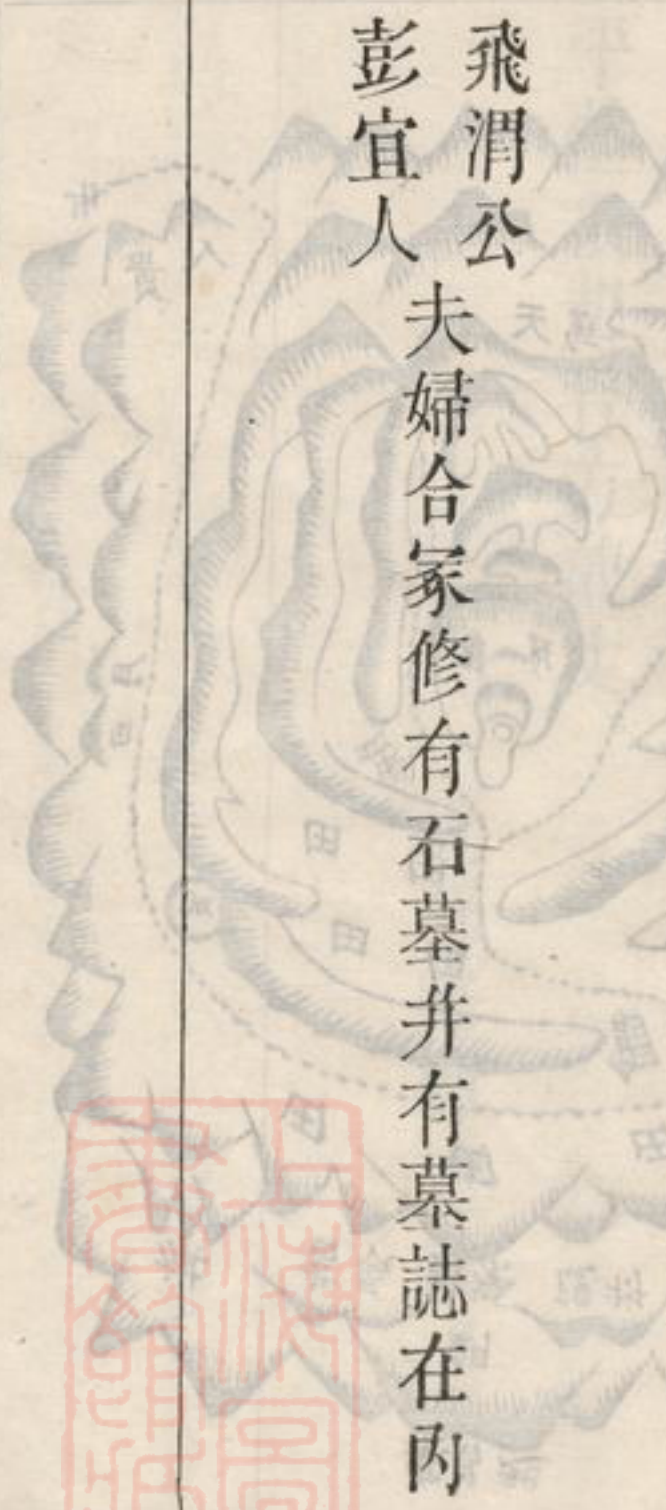 飛渭公
彭宜人
夫婦合冢修有石墓并有墓誌在內